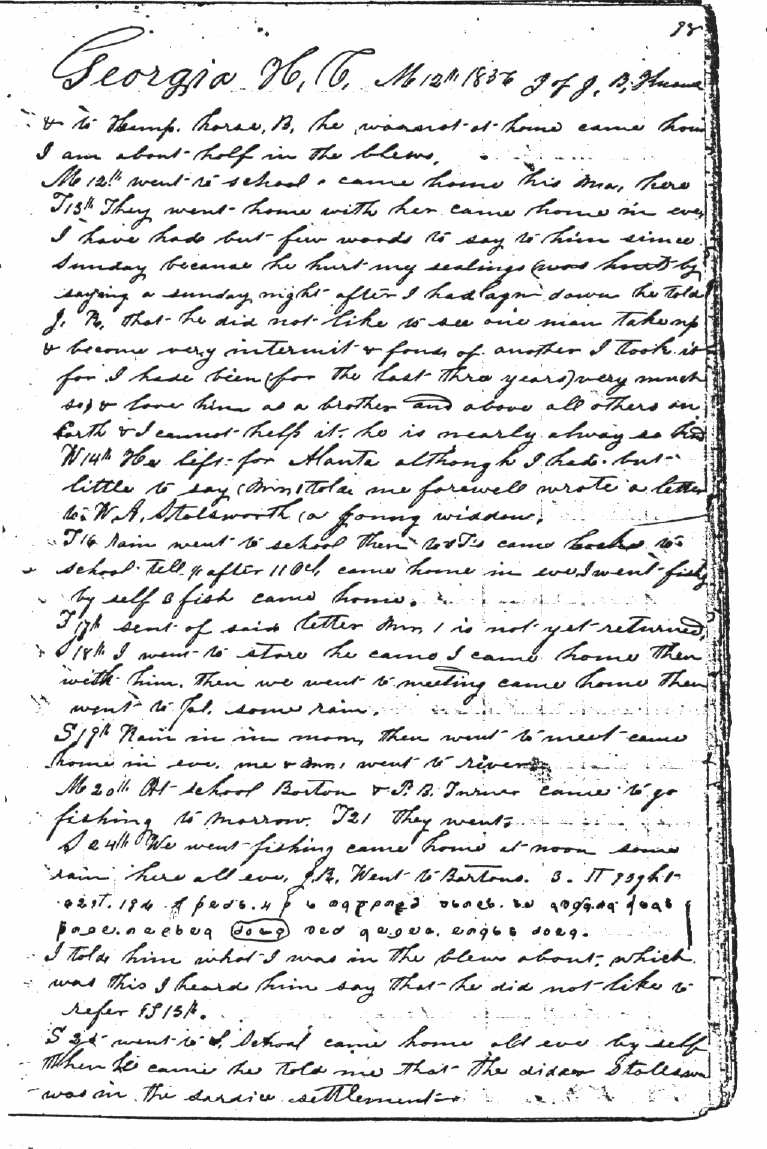 98
Georgia H, C, M 12th 1856 J of J, B,
& to Hemp. horse, B, he was not at home came hom
I am about half in the blews,
M 12th went to school & came home his Ma, here
T 13th They went home with her came home in eve,
I have hade but few woods to say to him since
Sunday because he hurt my sealings (was hurt) by
saying a sunday night after I had layn down he told
J, B, that he did not like to see one man take up
& become very intermit & fond of another I took it
for I hade been (for the last three years) very much
so) & love him as a brother and above all others on
Earth & I cannot help it he is nearly alway so kind
W 14th He left for Alanta although I hade but
little to say (Mn) tolde me farewell wrote a letter
to W, A, Stolsworth (a young widdow,
T 16 rain went to school then to T's came backe to
school tell after 11 Ocl, came home in eve, I went fishg
by self 3 fish came home.
F 17th sent of said letter Mn, is not yet returned,
S 18th I went to store he came I came home then
with him. then we went to meeting came home then
went to Jol. some rain,
S 19th Rain in in morn, then went to meet came
home in eve, me & Mn, went to river
M 20th At school Borton & P. B. Turner came to go
fishing to morrow, T 21 they went,
S 24th We went fishing came home at noon some
rain here all eve, J, B, Went to Bartons.
I tolde him what I was in the blews about, which
was this I heard him say that he did not like to
refer S 13th.
S 25 went to S, School came home all eve by self
When he came he told me that the
was in the sardice settlement